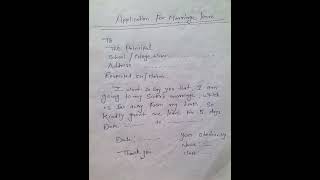 Application For Marriage Leave
To
The Principal
School / College Name
Address
Respected sir/Mam
I want to say you that, I am
going to my Sister marriage which
is far away from my town. So
kindly grant me leave for 5 days
Date to
Date Your obediently
Name
Thank you class